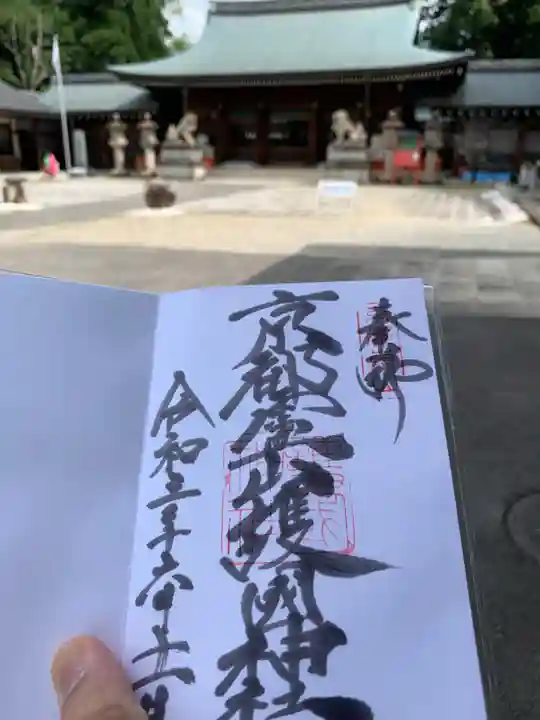 奉拝
京都霊山護國神社
令和三年六月十一日